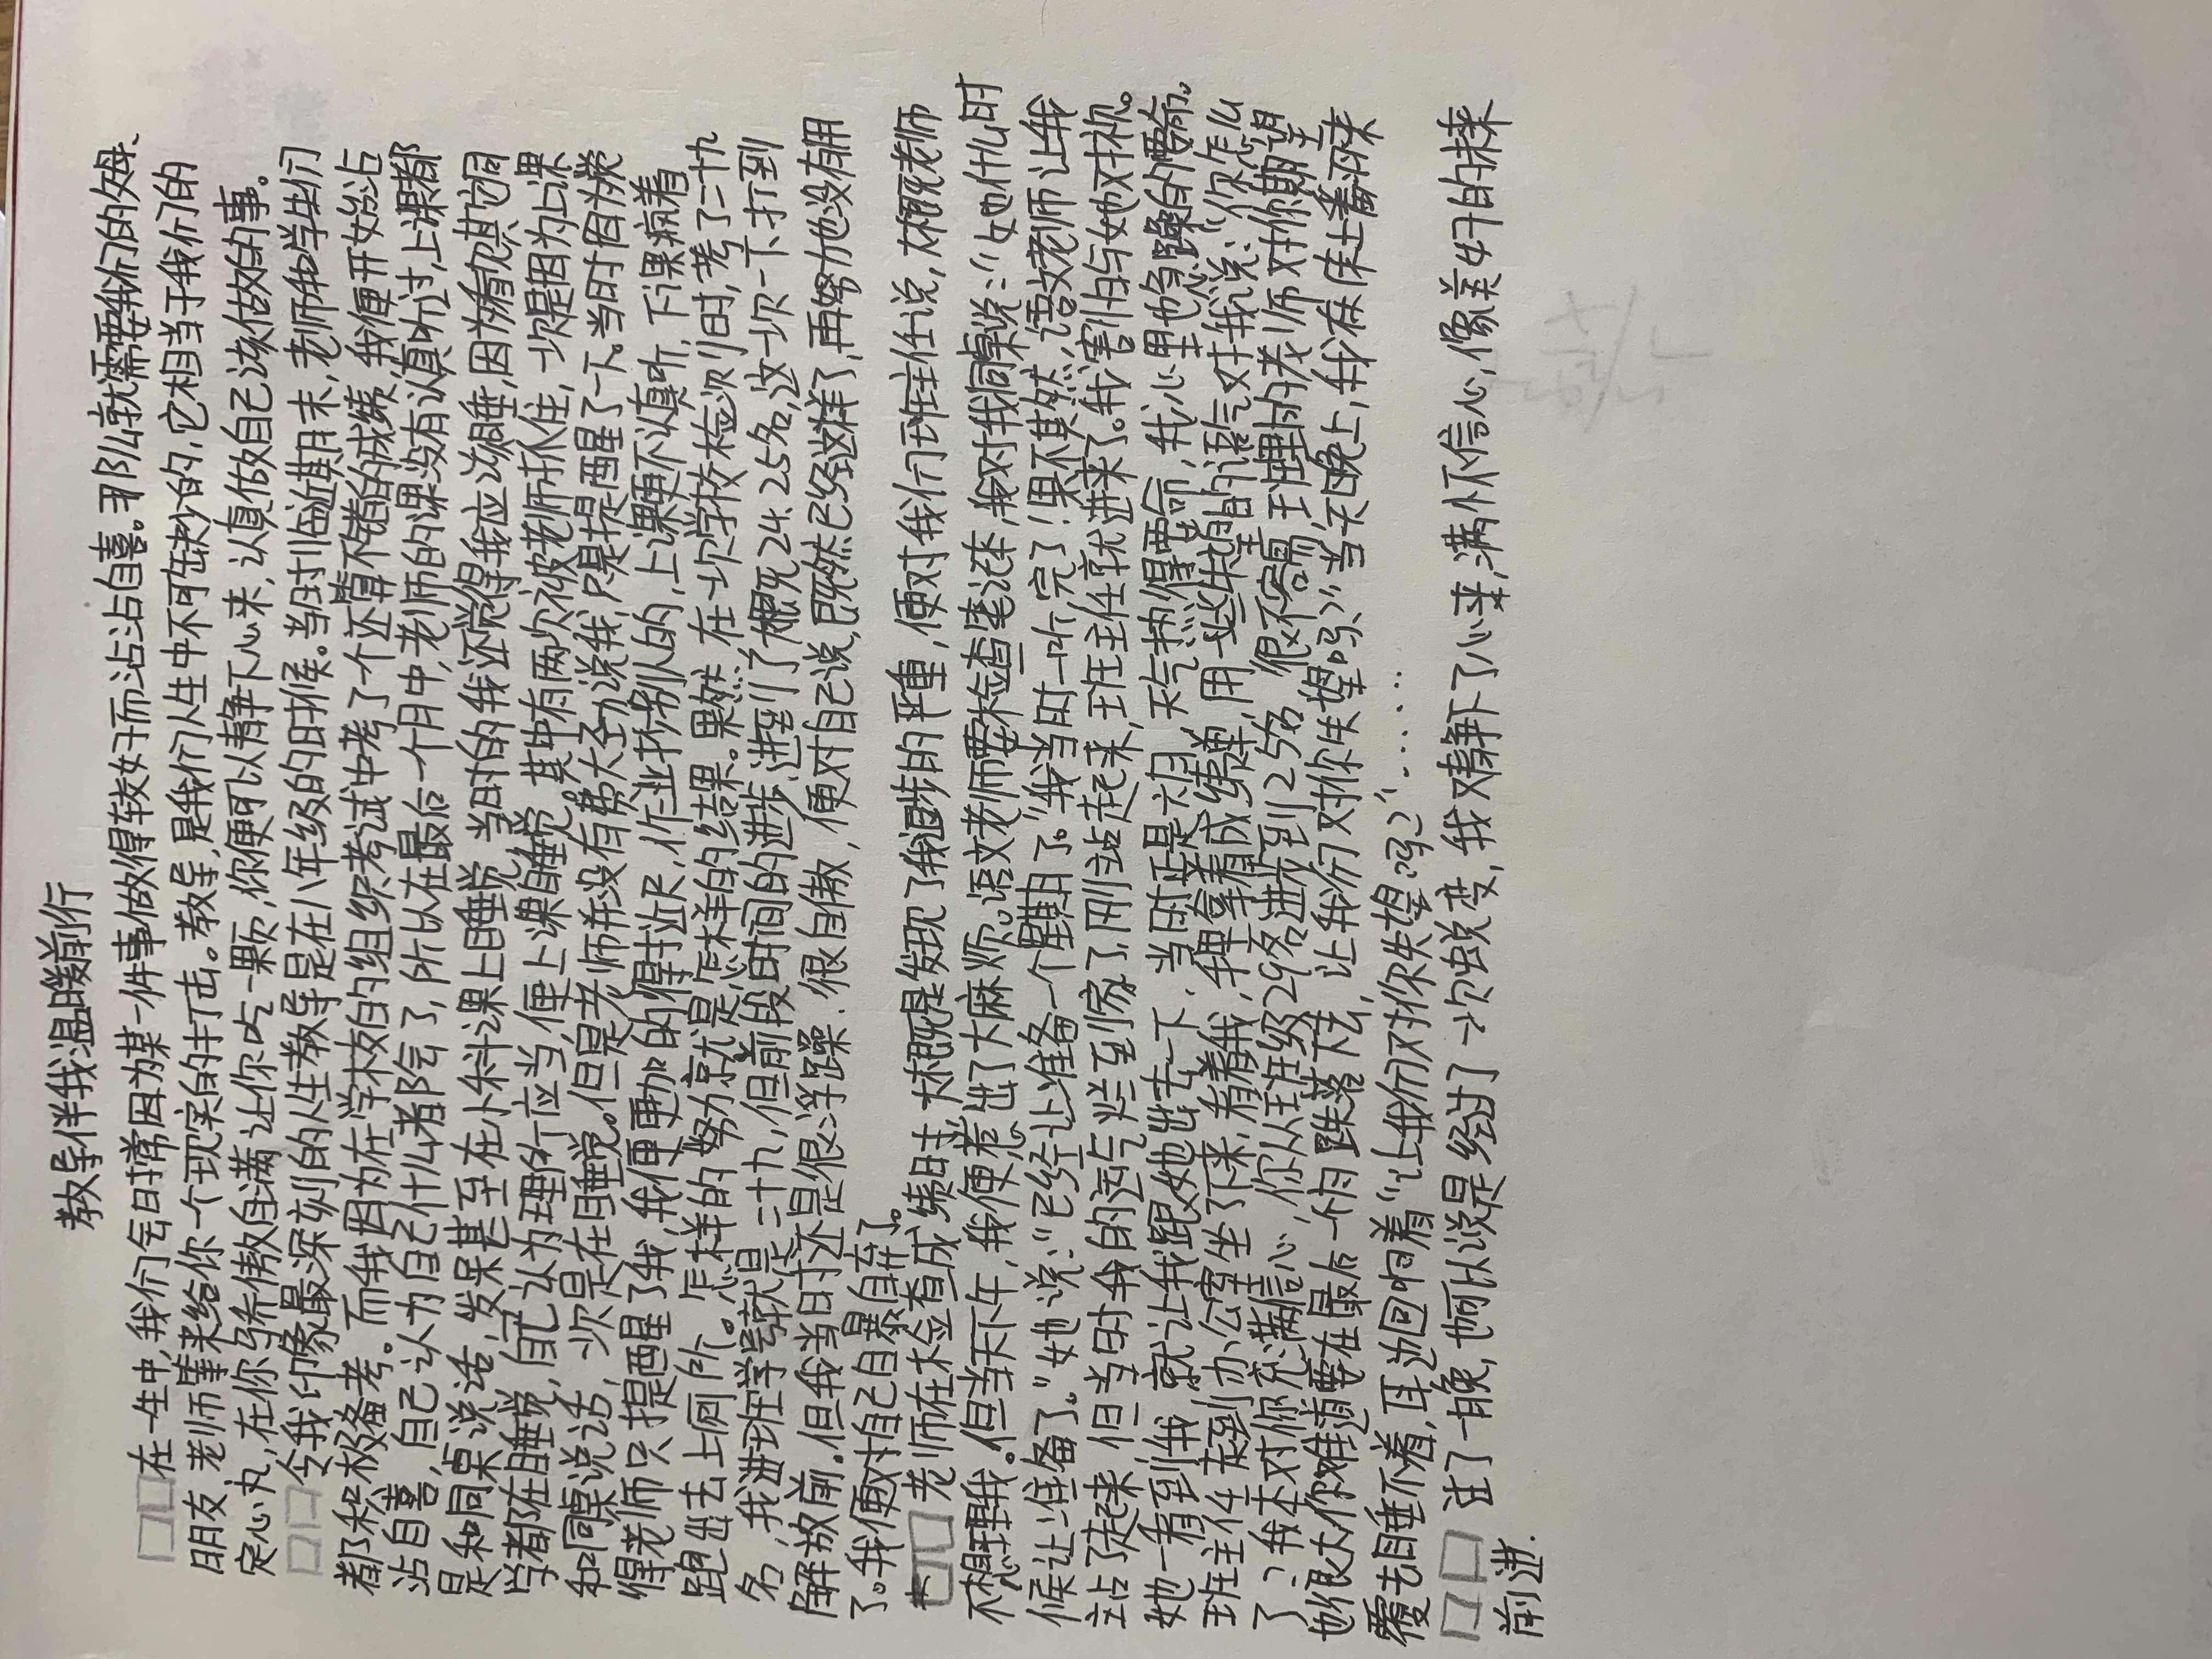 教导伴我温暖前行
在一生中,我们会日常因为某一件事做得较好而沾沾自喜。那么就需要我们的父母、
朋友 老师等来给你一个现实的打击。教导,是我们人生中不可缺少的,它相当于我们的
定心丸,在你骄傲自满让你吃一颗,你便可以静下心来,认真做自己该做的事。
令我印像最深刻的人生教导是在八年级的时候。当时临近期末,老师和学生们
都积极备考。而我因为在学校的组织考试中考了个还算不错的成绩,我便开始沾
沾自喜,自己认为自己什么都会了,所以在最后一个月中,老师的课没有认真听过,上课都
是和同桌说话,发呆甚至在小科课上睡觉 当时的我还觉得我应该睡,因为看见其它同
学都在睡觉,自己认为理所应当 便上课睡觉。其中有两次被老师抓住,一次是因为上课
和同桌说话,一次是在睡觉。但是老师并没有费大劲说我,只是提醒了一下。当时因为觉
得老师只提醒了我,我便更加的得寸进尺,作业抄别人的,上课更不认真听,下课疯着
跑出去上厕所。怎样的努力就是怎样的结果。果然 在一次学校检测时,考了二十九
名,我进班学号就是二十九,但前段时间的进步,进到了 24、25名,这一次一下打到
解放前。但我当时还是很浮躁.很自傲,便对自己说,既然已经这样了,再努力也没有用
了。我便对自己自暴自弃了。
老师在检查成绩时,大概是发现了我退步的严重,便对我们班主任说,大概老师
不想理我。但当天下午,我便惹出了大麻烦。语文老师要检查笔记本,我对我同桌说:“她什么时
候让准备了。”她说:“已经让准备一个星期了。”我当时一听,完了!果不其然,语文老师让我
站了起来 但当时我的运气烂到家了,刚站起来,班主任就进来了。我害怕与她对视。
她一看到我 就让我跟她出去一下.当时正是六月,天气热得要命,我心里也急躁的要命。
班主任 走到办公室坐了下来,看着我,手里拿着成绩单,用一些失望的语气对我说:“你怎么
了?我本对你充满信心,你从年级29名进步到25名,很不容易,班里的老师对你期望
也很大,你难道要在最后一个月 跌落下去,让我们对你失望吗?”当天晚上,我在床上翻来
覆去睡不着,耳边回响着“让我们对你失望吗?”……
过了一晚,也可以说是经过了一次蜕变,我又静下了心来,满怀信心,像美好的未来
前进.